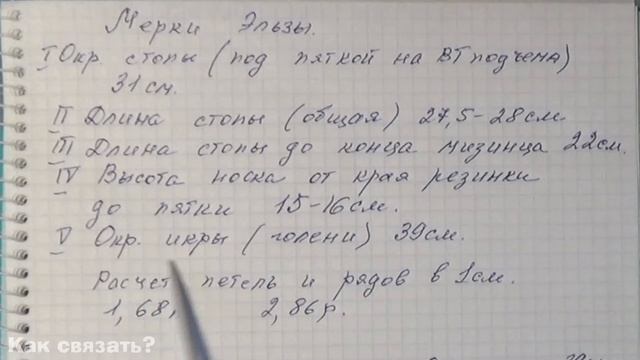 Мерки Эльзы.
I Окр. стопы (под пяткой на ВТ подъема)
31 см.
II Длина стопы (общая) 27,5-28 см
III Длина стопы до конца мизинца 22 см.
IV Высота носка от края резинки
до пятки 15-16 см.
V Окр. икры (голени) 39 см.
Расчет петель и рядов в 1 см.
1,68, 2,86 р.
Как связать?